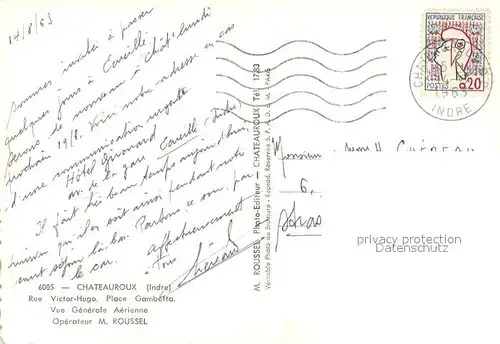 14/8/63
Sommes invités à passer
quelques jours à
serons de nouveau à chât. lundi
prochain 19/8. Voici notre adresse en cas
d'une communication urgente
Hôtel
av. de la gare (Indre)
Il fait très beau temps aujourd'hui,
qu'il en soit ainsi pendant notre
séjour là-bas. Partons ce soir, par
le car. Affectueusement
Tous
6005 — CHATEAUROUX (Indre)
Rue Victor-Hugo, Place Gambetta.
Vue Générale Aérienne
Opérateur M. ROUSSEL
M. ROUSSEL Photo-Editeur — CHATEAUROUX Tél. 1783
Véritable Photo au Bromure - Reprod. Réservée S. P. A. D. E. M. PARIS
REPUBLIQUE FRANÇAISE
POSTES 0,20
1963
INDRE
Monsieur
6,
privacy protection
Datenschutz